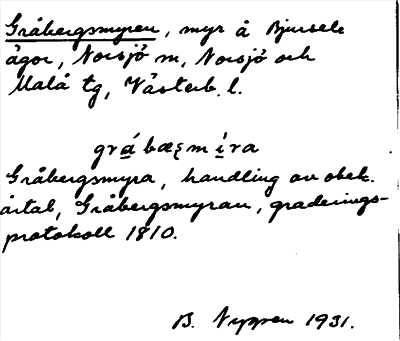 Gråbergsmyren, myr å Bjursele
ägor, Norsjö sn, Norsjö och
Malå tg, Västerb. l.
grábæʂmìra
Gråbergsmyra, handling av obek.
årtal, Gråbergsmyran, graderings-
protokoll 1810.
B. Nyppen 1931.